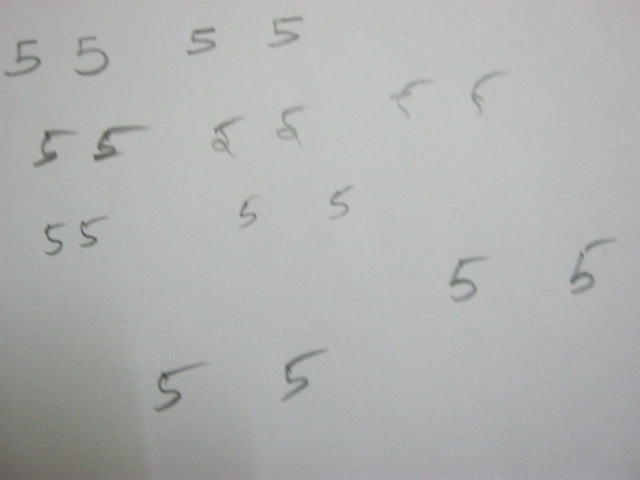 5 5 5 5
5 5 5 5 5 5
5 5 5 5
5 5
5 5